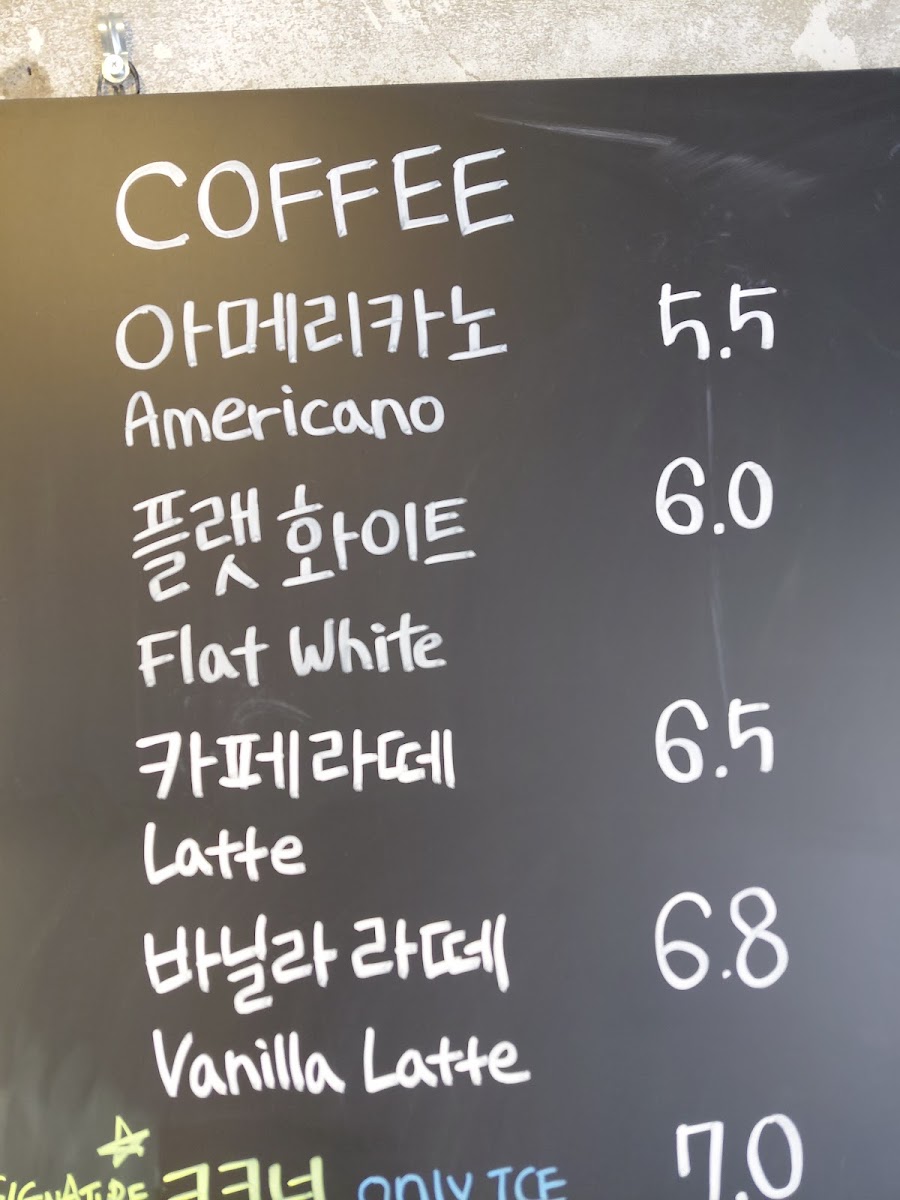 COFFEE
아메리카노 5.5
Americano
플랫 화이트 6.0
Flat White
카페라떼 6.5
Latte
바닐라 라떼 6.8
Vanilla Latte
SIGNATURE ONLY ICE 7.0